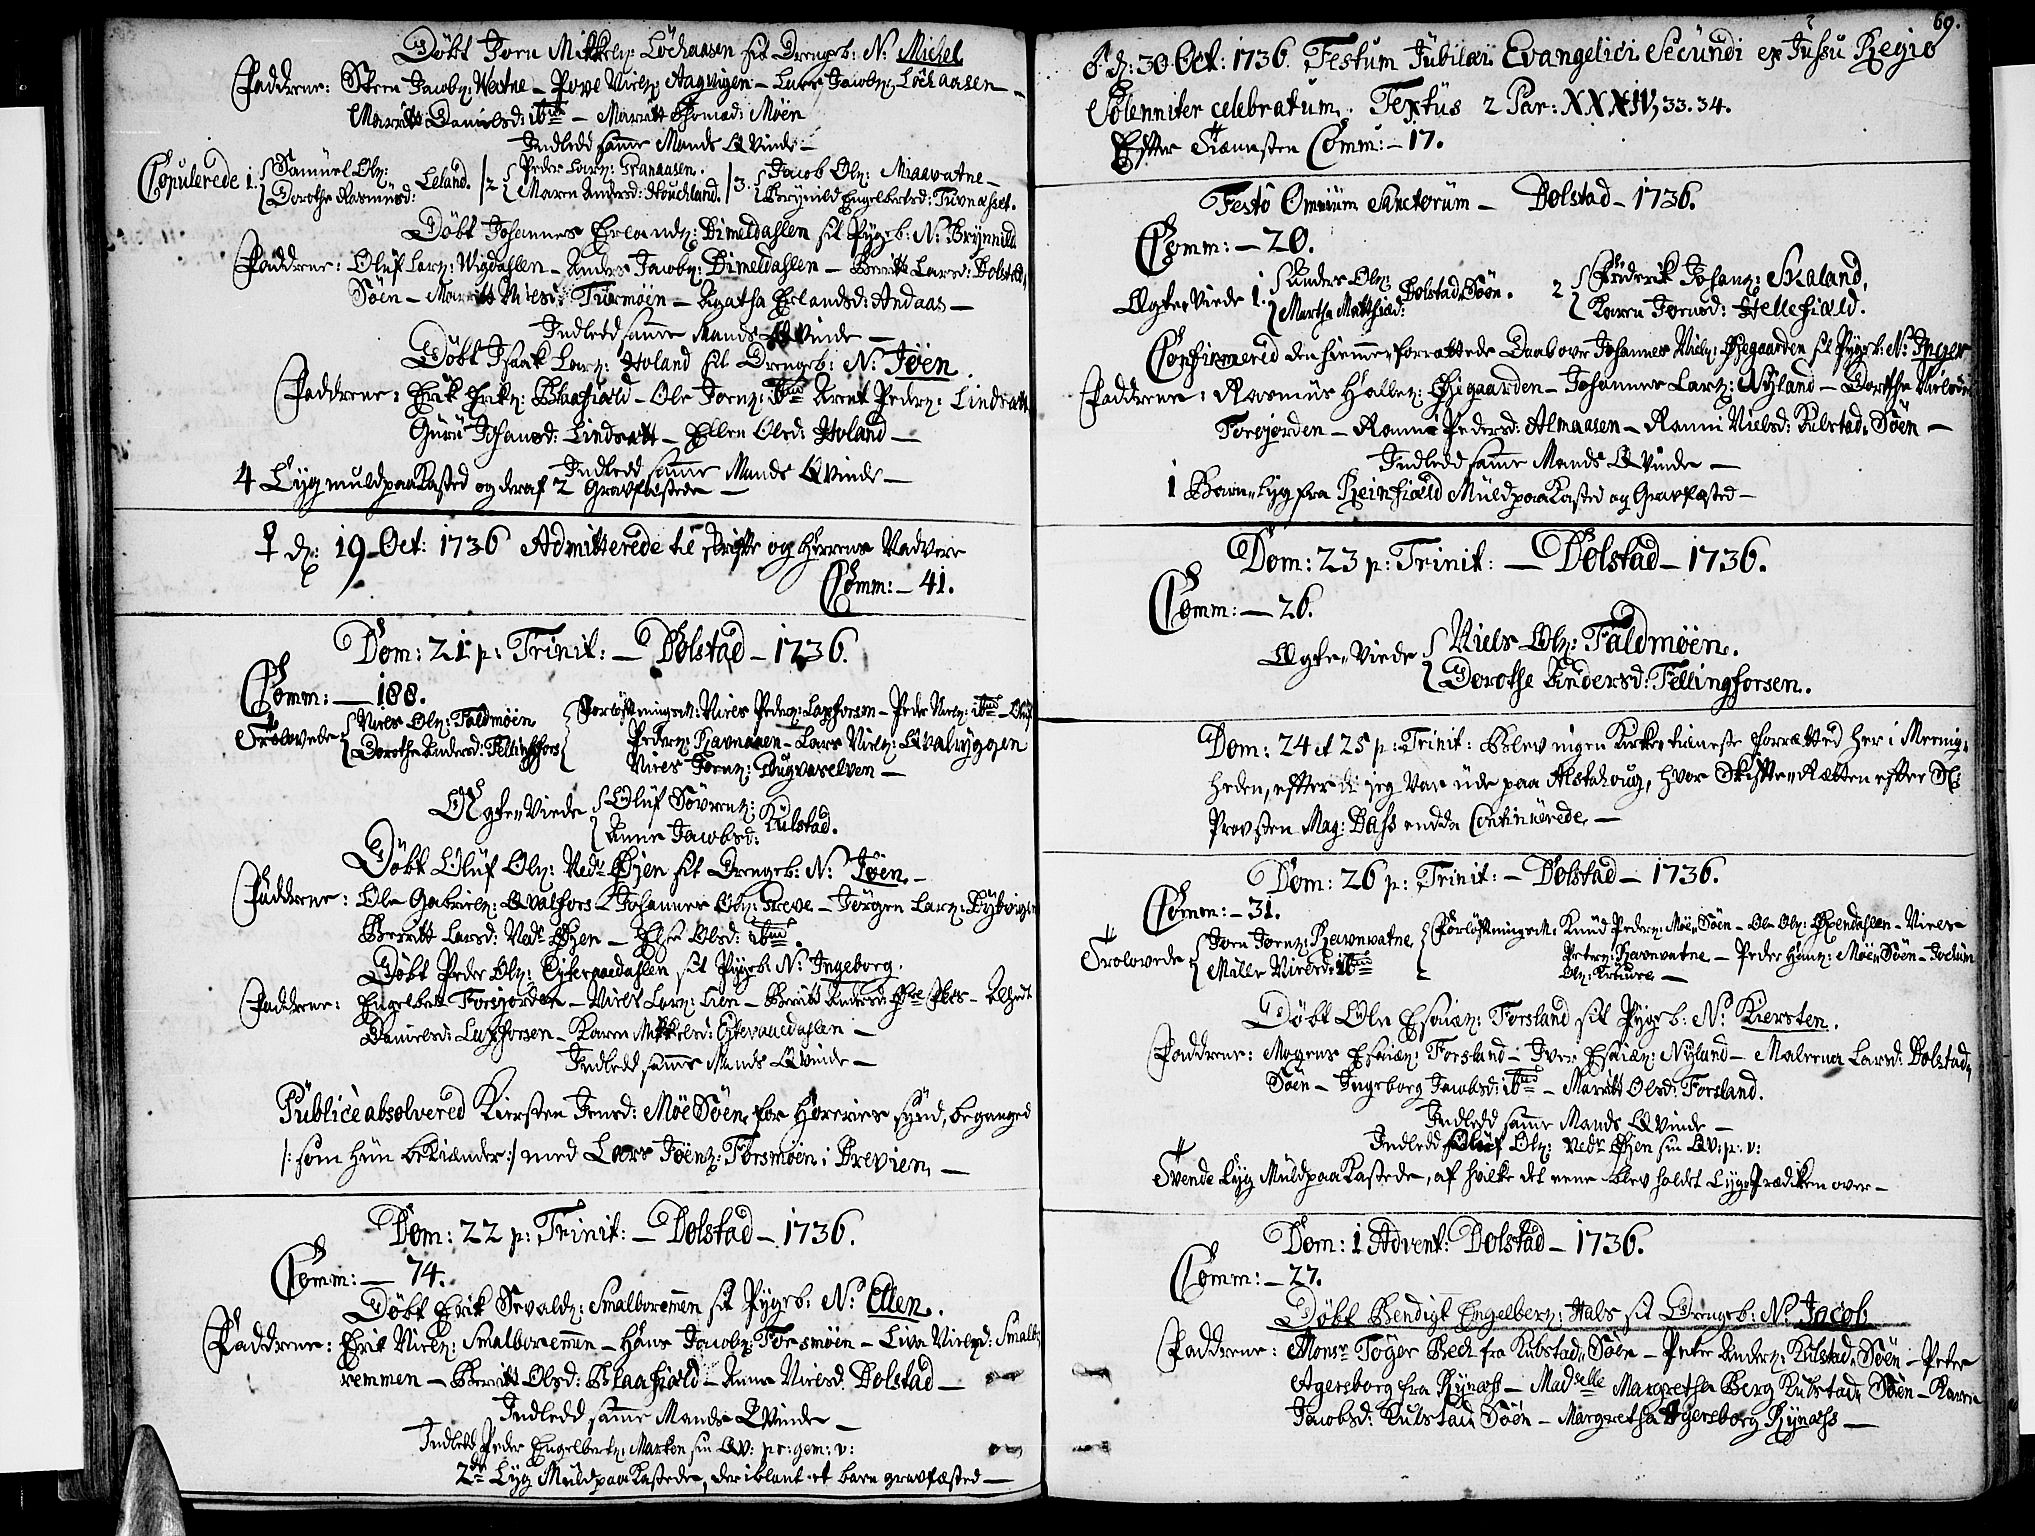 Döbt Joen Mikkelz: Löchaasen sit Drengeb: N. Michel
Faddrene: Steen Jacobz: Westne – Povel Nielz: Aagvigen – Lars Jacobz: Löchaasen –
Maritt Danielsd: ibid – Maritt Thomasd: Möen
Indledd samme Mands QVinde –
Copulerede 1. Samuel Olz: Dorothe Rasmusd: Leland. 2 Peder Larz: Granaasen. Maren Andersd: Houchland. 3. Jacob Olz: Miaavatne – Brynild Engelbertsd: Tuvnæsset.
Döbt Johannes Erlandz: Dimeldahlen sit Pygeb: N. Brynnild
Faddrene: Oluf Larz: Wigdahlen – Anders Jacobz: Dimeldahlen – Beritte Larsd: Dolstad,
Söen – Maritt Nielsd: Turmöen – Agatha Erlandsd: Andaas –
Indledd samme Mands QVinde –
Döbt Isaak Larz: Holand sit Drengeb: N. Jöen.
Faddrene: Erik Erikz: Blaafiæld – Ole Joenz: ibid Arent Pederz: Lindsætt
Guru Johansd: Lindsætt – Ellen Olsd: Holand –
Indledd samme Mands QVinde –
4 Lyg muldpaaKasted og deraf 2 Gravfæstede –
♀ d: 19 Oct: 1736 Admitterede til skrifte og Herrens Nadvere
Comm: – 41.
Dom: 21 p: Trinit: – Dolstad – 1736.
Comm: – 188.
Trolovede Niels Olz: Faldmöen Dorothe Andersd: Fellingfors Forlöftningsm: Niels Pederz: Laxforsen – Peder Nielz: ibid – Oluf
Pederz: Ravnaaen – Lars Nielz: Qvalnyggen
Niels Joenz: Drugvaselven –
Ægte Viede Oluf Sövrenz: Anne Jacobsd: Kulstad.
Döbt Oluf Olz: Nedr Öyen sit Drengeb: N. Jöen. –
Faddrene: Ole Gabrielz: Qvalfors – Johannes Olz: Greve – Jörgen Larz:
Beritt Larsd: Nedr Öyen – Else Olsd: ibid.
Döbt Peder Olz: Eyteraaedahlen sit Pygeb: N. Ingeborg.
Faddrene: Engelbert Forsjorden – Niels Larz: Lien – Beritt Andersd:
Danielsd: Laxforsen – Karen Mikkelsd: Eytevaaedahlen –
Indledd samme Mands QVinde –
Publice absolvered Kiersten Jensd: Möe Söen, for Hoeries synd, beganged
/: som hun bekiænder :/ med Lars Jöenz: Forsmöen i Brevien, –
Dom: 22 p: Trinit: – Dolstad – 1736.
Comm: – 74.
Döbt Erik Sevaldz: Smalvoremmen sit Pygeb: N. Ellen.
Faddrene: Erik Nielz: Smalvoremmen – Hans Jacobz: Forsmöen – Live Nielsd: Smalv,
remmen – Beritt Olsd: Blaafiæld – Anne Nielsd: Dolstad –
Indledd samme Mands QVinde –
Indledd Peder Engelbertz: Marken sin QV: pr: gem: v:
2de Lyg MuldpaaKastede, der iblant et barn gravfæsted –
69.
♂ d: 30 Oct: 1736. Festum Jubilæi Evangelici Secundi ex Jussu Regio
Solenniter celebratum. Textus 2 Par: XXXIV, 33. 34.
Efter Tiænesten Comm: – 17.
Festô Omnium Sanctorum – Dolstad – 1736.
Comm: – 20.
Ægte Viede 1. Anders Olz: Martha Matthiæd: Dolstad Söen. 2 Friderik Johanz: Skaland, Karen Joensd: Hellefiæld.
Confirmered den hiemmeforrættede Daab over Johannes Nielz: Öyegaarden sit Pygeb: N. Inger
Faddrene: Rasmus Hallez: Öyegaarden – Johannes Larz: Nyland – Dorthe Nielsd:
Forsjorden – Ranni Pedersd: Almaasen – Ranni Nielsd: Kulstad Söen –
Indledd samme Mands QVinde –
1 Barne-Lyg fra Reinfiæld MuldpaaKasted og Gravfæsted –
Dom: 23 p: Trinit: – Dolstad – 1736.
Comm: – 26.
Ægte Viede Niels Olz: Faldmöen. Dorothe Andersd: Fellingforsen.
Dom: 24 et 25 p: Trinit: Blev ingen Kirketieneste forrætted her i Meenig,
heden, efterdi jeg var ude paa Alstahoug, hvor Skifte-Rætten efter Sl:
Provsten Mag: Dass endda Continuerede, –
Dom: 26 p: Trinit: – Dolstad – 1736.
Comm: – 31.
Trolovede Joen Joenz: Ravnvatne, Mille Nielsd: ibid Forlöftningsm: Knud Pederz: Möe Söen – Ole Olz: Öxendahlen – Niels
Peterz: Ravnvatne – Peder Hanz: Möe Söen – Jochum
Olz:
Döbt Ole Esaiæz: Forsland sit Pygeb: N. Kiersten.
Faddrene: Mogens Esaiæz: Forsland – Iver Esaiæz: Nyland – Malena Larsd: Dolstad,
Söen – Ingeborg Jacobsd: ibid – Maritt Olsd: Forsland.
Indledd samme Mands QVinde –
Indledd Oluf Olz: Nedr Öyen sin QV: p: v:
Tvende Lyg MuldpaaKastede, af hvilke det eene blev holdet LygePrædiken over –
Dom: 1 Advent: Dolstad – 1736.
Comm: – 27.
Döbt Bendigt Engelberz: Hals sit Drengeb: N. Jacob
Faddrene: Monsr Töger Bech fra Kulstad Söen – Peter Anderz: Kulstad Söen – Peter
Agersborg fra Rynæss – Madselle Margretha Berg Kulstad Söen – Karen
Jacobsd: Kulstad Söen – Margretha Agersborg Rynæss –